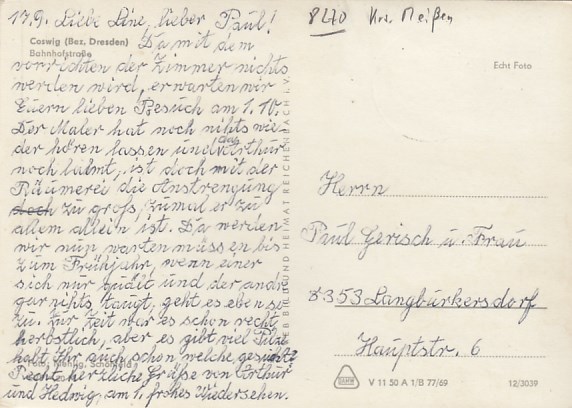 17.9. Liebe Line, lieber Paul!
Coswig (Bez. Dresden)
Bahnhofstraße
Da mit dem
vorrichten der Zimmer nichts
werden wird, erwarten wir
Euern lieben Besuch am 1.10.
Der Maler hat noch nichts wie-
der hören lassen und da Arthur
noch lahmt, ist doch mit der
Räumerei die Anstrengung
doch zu groß, zumal er zu
allem allein ist. Da werden
wir nun warten müssen bis
zum Frühjahr, wenn einer
sich nur und der andre
gar nichts taugt, geht es eben so
zu. Zur Zeit war es schon recht
herbstlich, aber es gibt viel Pilze
habt Ihr auch schon welche gesucht?
Recht herzliche Grüße von Arthur
und Hedwig, am 1. frohes Wiedersehen.
Foto: Schönfeld
VEB BILD UND HEIMAT REICHENBACH I. V.
8270 Krs. Meißen
Echt Foto
Herrn
Paul Gerisch u. Frau
8353 Langburkersdorf
Hauptstr. 6
V 11 50 A 1/B 77/69
12/3039